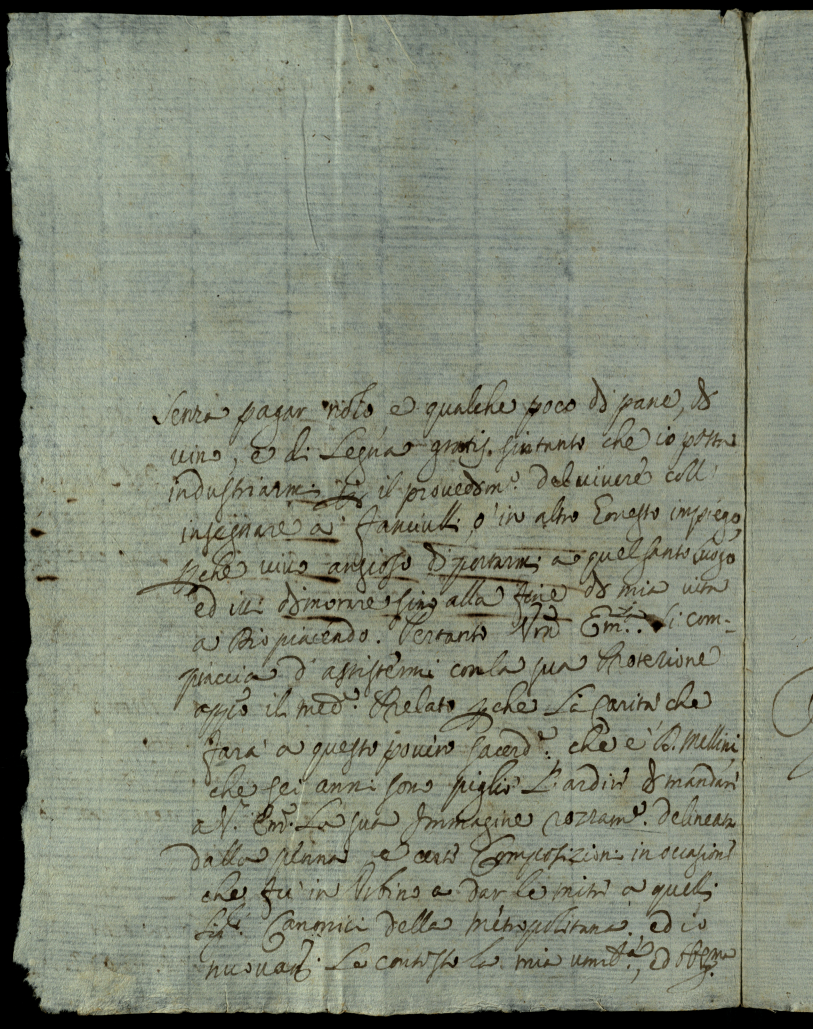 senza pagar nolo e qualche poco di pane, di
vino, e di Legna gratis. sintanto che io possa
industriarmi per il provedim.o del vivere coll'
insegnare a' fanciulli, o' in altro Onesto impiego
perche vivo ansioso di portarmi a quel santo luogo
ed ivi dimorare sino alla fine di mia vita
a Dio piacendo. Pertanto Vra Em.za si com-
piaccia d'assistermi con la sua Protezione
app.o il med.o Prelato perche La Carità che
farà a questo povero sacerd.e che è B. Mellini
che sei anni sono pigliò L'ardire di mandare
a V. Em. La sua Immagine rozzam.e delineata
dalla penna e certe Composizioni in occasione
che fù in Urbino a dar le mitre a quelli
Sig.ri Canonici della Metropolitana. ed io
nuovam. Le contesto la mia umiltà, ed obbma